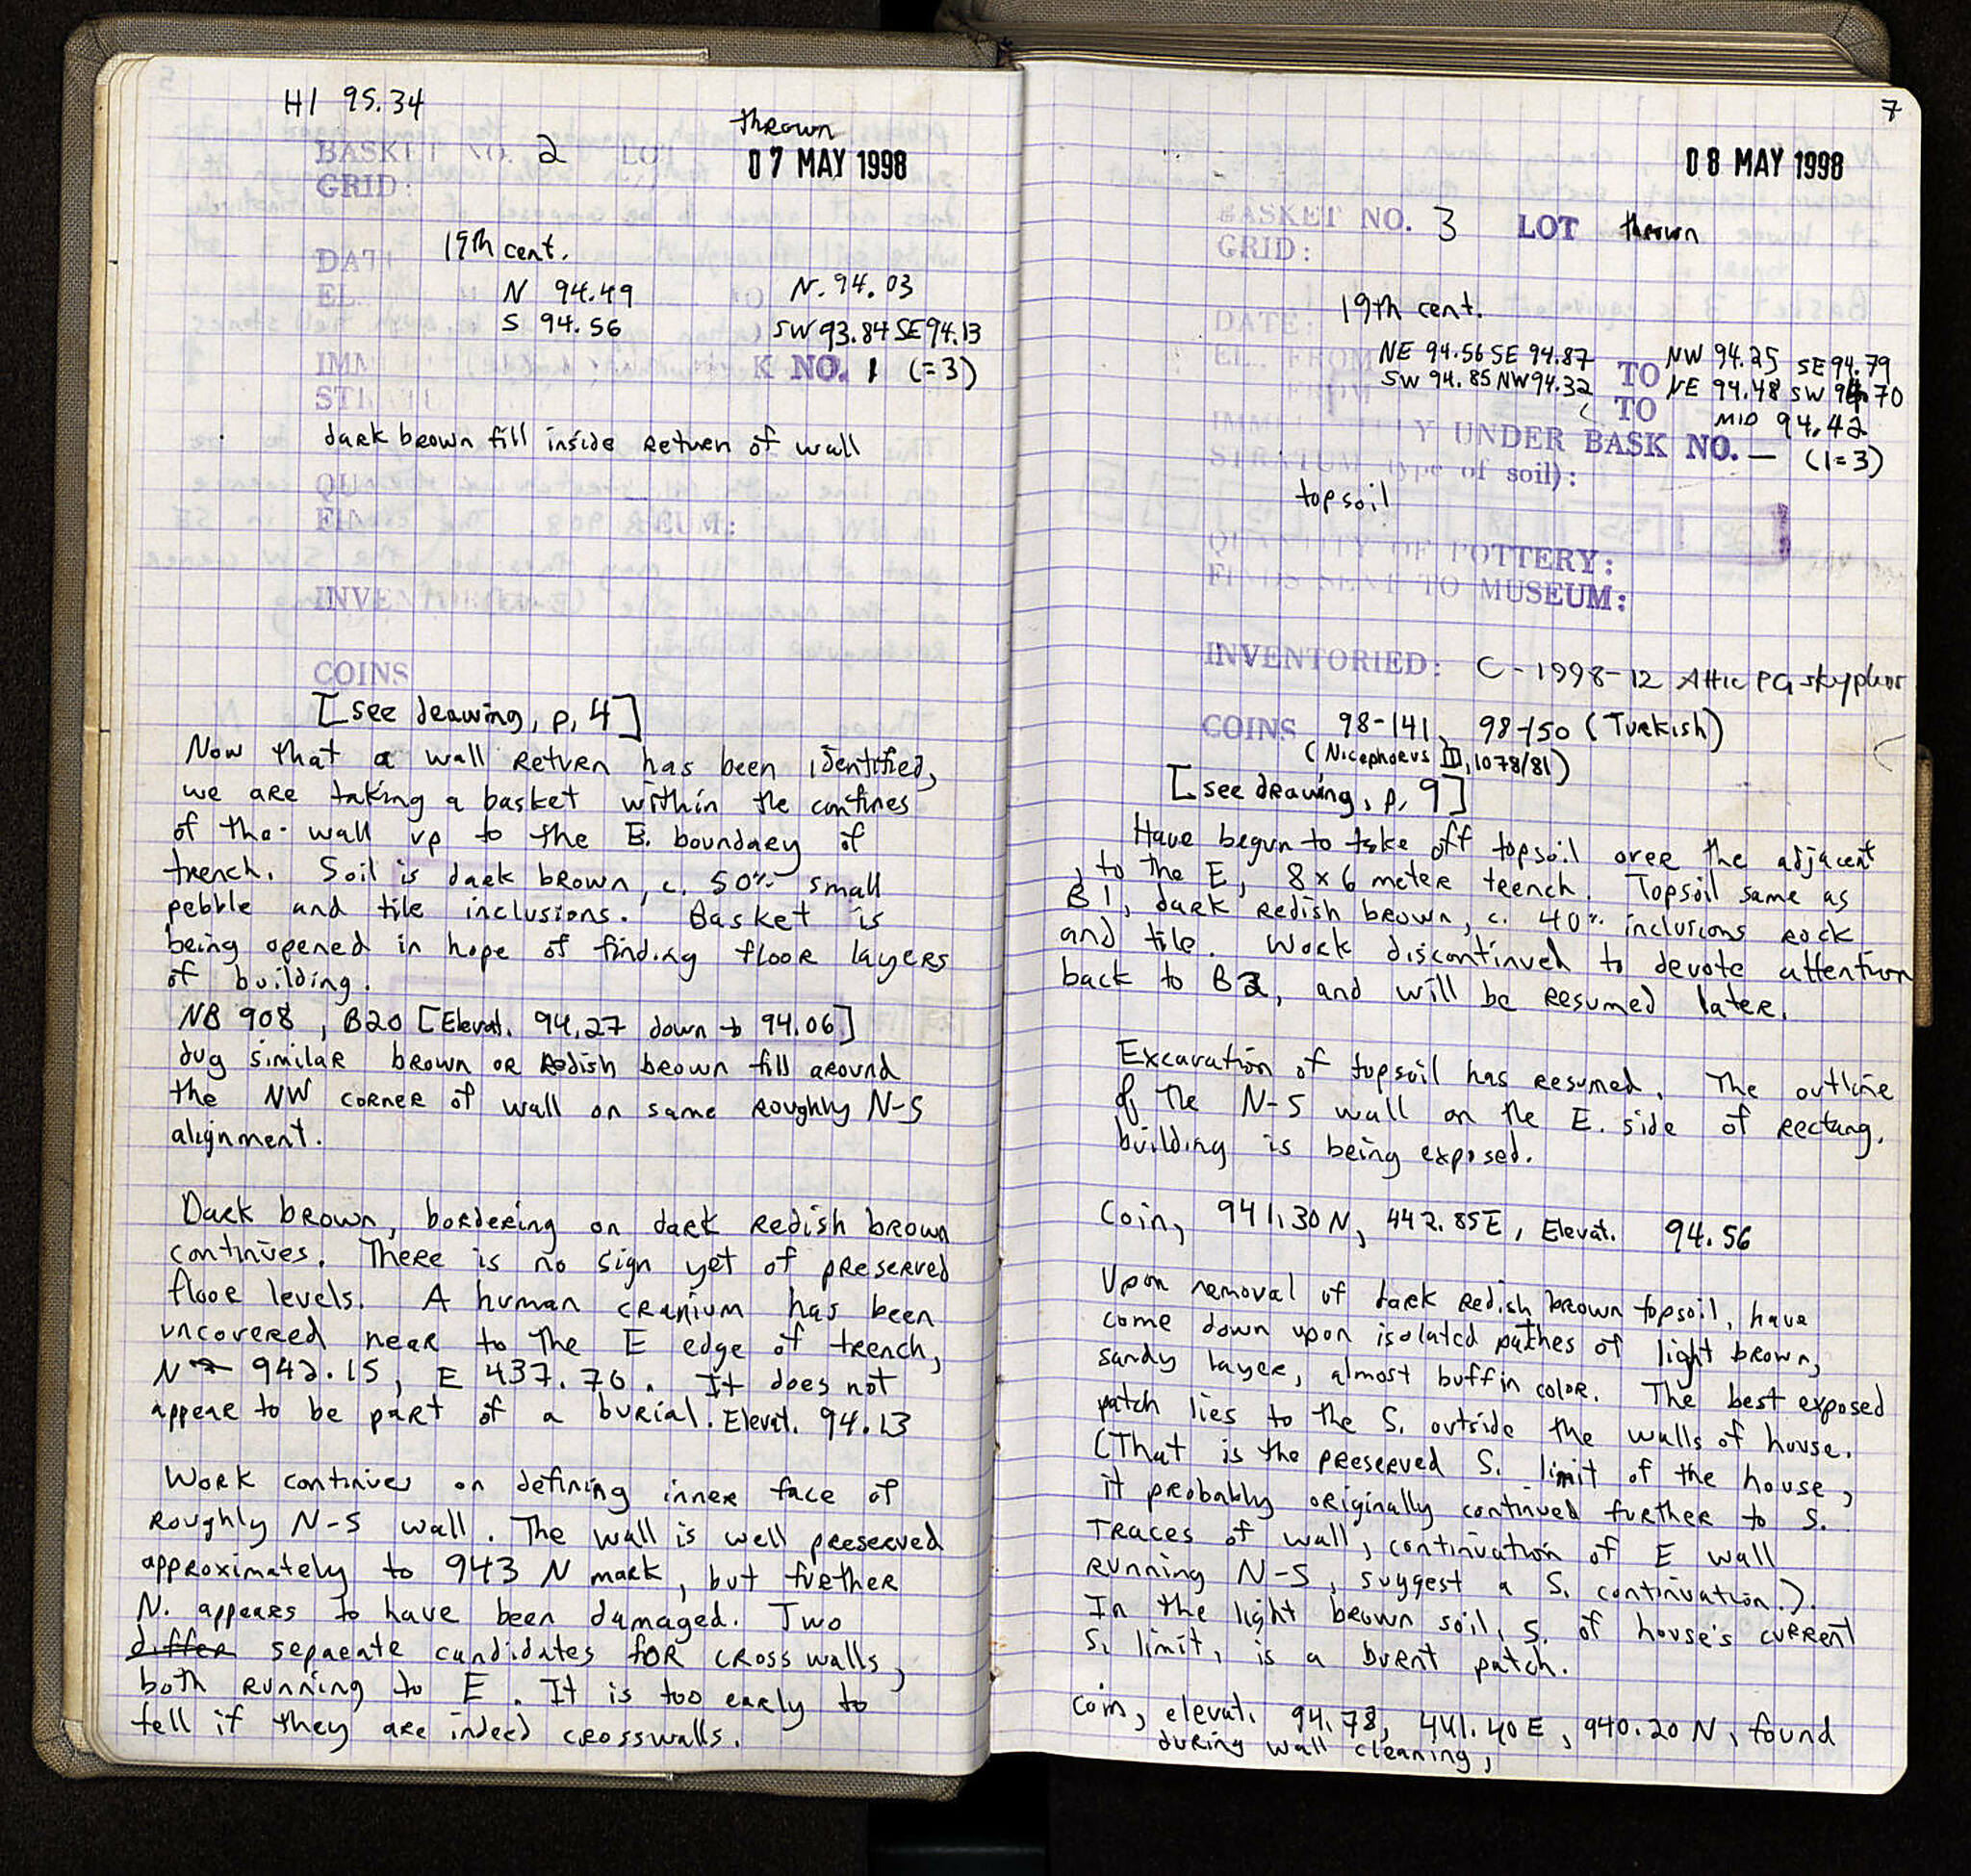 HI 95.34
thrown
BASKET NO. 2 LOT 07 MAY 1998
GRID:
19th cent.
DATE
EL. N 94.49 TO N. 94.03
S 94.56 SW 93.84 SE 94.13
IMM K NO. 1 (=3)
dark brown fill inside return of wall
QU —
FI EUM:
INVENT
COINS
[see drawing, p. 4]
Now that a wall return has been identified,
we are taking a basket within the confines
of the wall up to the E. boundary of
trench. Soil is dark brown, c. 50% small
pebble and tile inclusions. Basket is
being opened in hope of finding floor layers
of building.
NB 908, B20 [Elevat. 94.27 down to 94.06]
dug similar brown or redish brown fill around
the NW corner of wall on same roughly N-S
alignment.
Dark brown, bordering on dark redish brown
continues. There is no sign yet of preserved
floor levels. A human cranium has been
uncovered near to the E edge of trench,
N 942.15, E 437.70. It does not
appear to be part of a burial. Elevat. 94.13
Work continues on defining inner face of
roughly N-S wall. The wall is well preserved
approximately to 943 N mark, but further
N. appears to have been damaged. Two
differ separate candidates for cross walls,
both running to E. It is too early to
tell if they are indeed crosswalls.
7
08 MAY 1998
BASKET NO. 3 LOT thrown
GRID:
19th cent.
DATE:
EL. FROM NE 94.56 SE 94.87 TO NW 94.25 SE 94.79
FROM SW 94.85 NW 94.32 TO NE 94.48 SW 94.70
MID 94.42
IMM Y UNDER BASK NO. — (1=3)
STRATUM type of soil):
topsoil
QUANTITY OF POTTERY:
FINDS SENT TO MUSEUM:
INVENTORIED: C-1998-12 Attic PG skyphos
COINS 98-141, 98-150 (Turkish)
(Nicephorus III, 1078/81)
[see drawing, p. 9]
Have begun to take off topsoil over the adjacent
, to the E, 8×6 meter trench. Topsoil same as
B1, dark redish brown, c. 40% inclusions rock
and tile. Work discontinued to devote attention
back to B2, and will be resumed later.
Excavation of topsoil has resumed. The outline
of the N-S wall on the E. side of rectang.
building is being exposed.
Coin, 941.30 N, 442.85 E, Elevat. 94.56
Upon removal of dark redish brown topsoil, have
come down upon isolated pathes of light brown,
sandy layer, almost buff in color. The best exposed
patch lies to the S. outside the walls of house.
(That is the preserved S. limit of the house,
it probably originally continued further to S.
Traces of wall, continuation of E wall
running N-S, suggest a S. continuation.).
In the light brown soil, S. of house's current
S. limit, is a burnt patch.
Coin, elevat. 94.78, 441.40 E, 940.20 N, found
during wall cleaning,